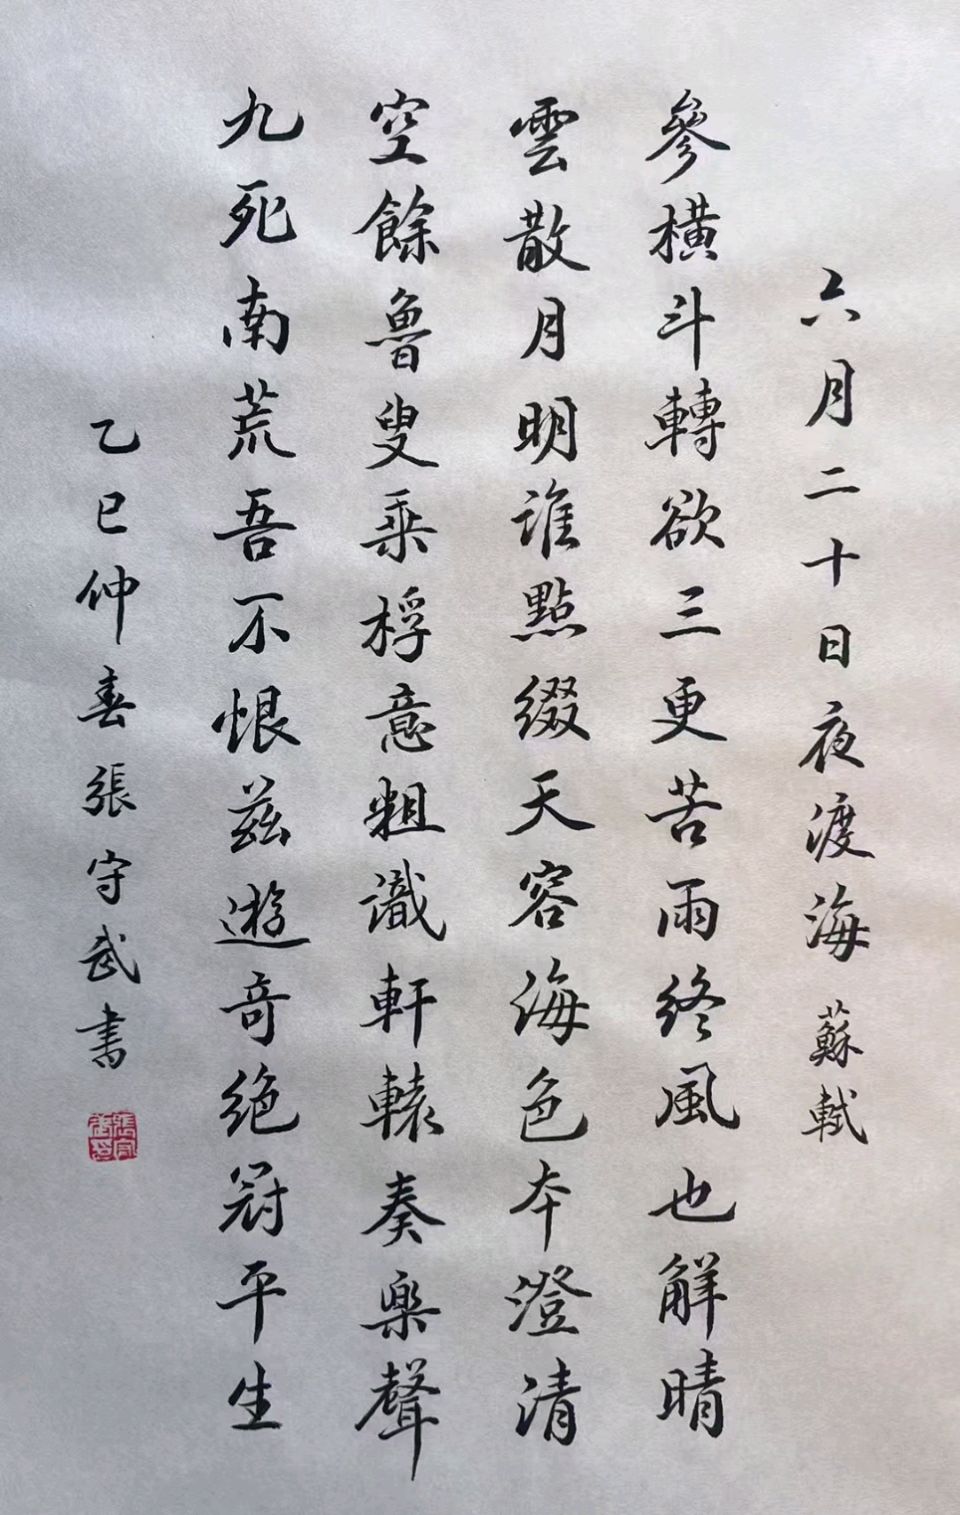 六月二十日夜渡海 蘇軾
參橫斗轉欲三更苦雨終風也解晴
雲散月明誰點綴天容海色本澄清
空餘魯叟乘桴意粗識軒轅奏樂聲
九死南荒吾不恨茲遊奇絕冠平生
乙巳仲春張守武書